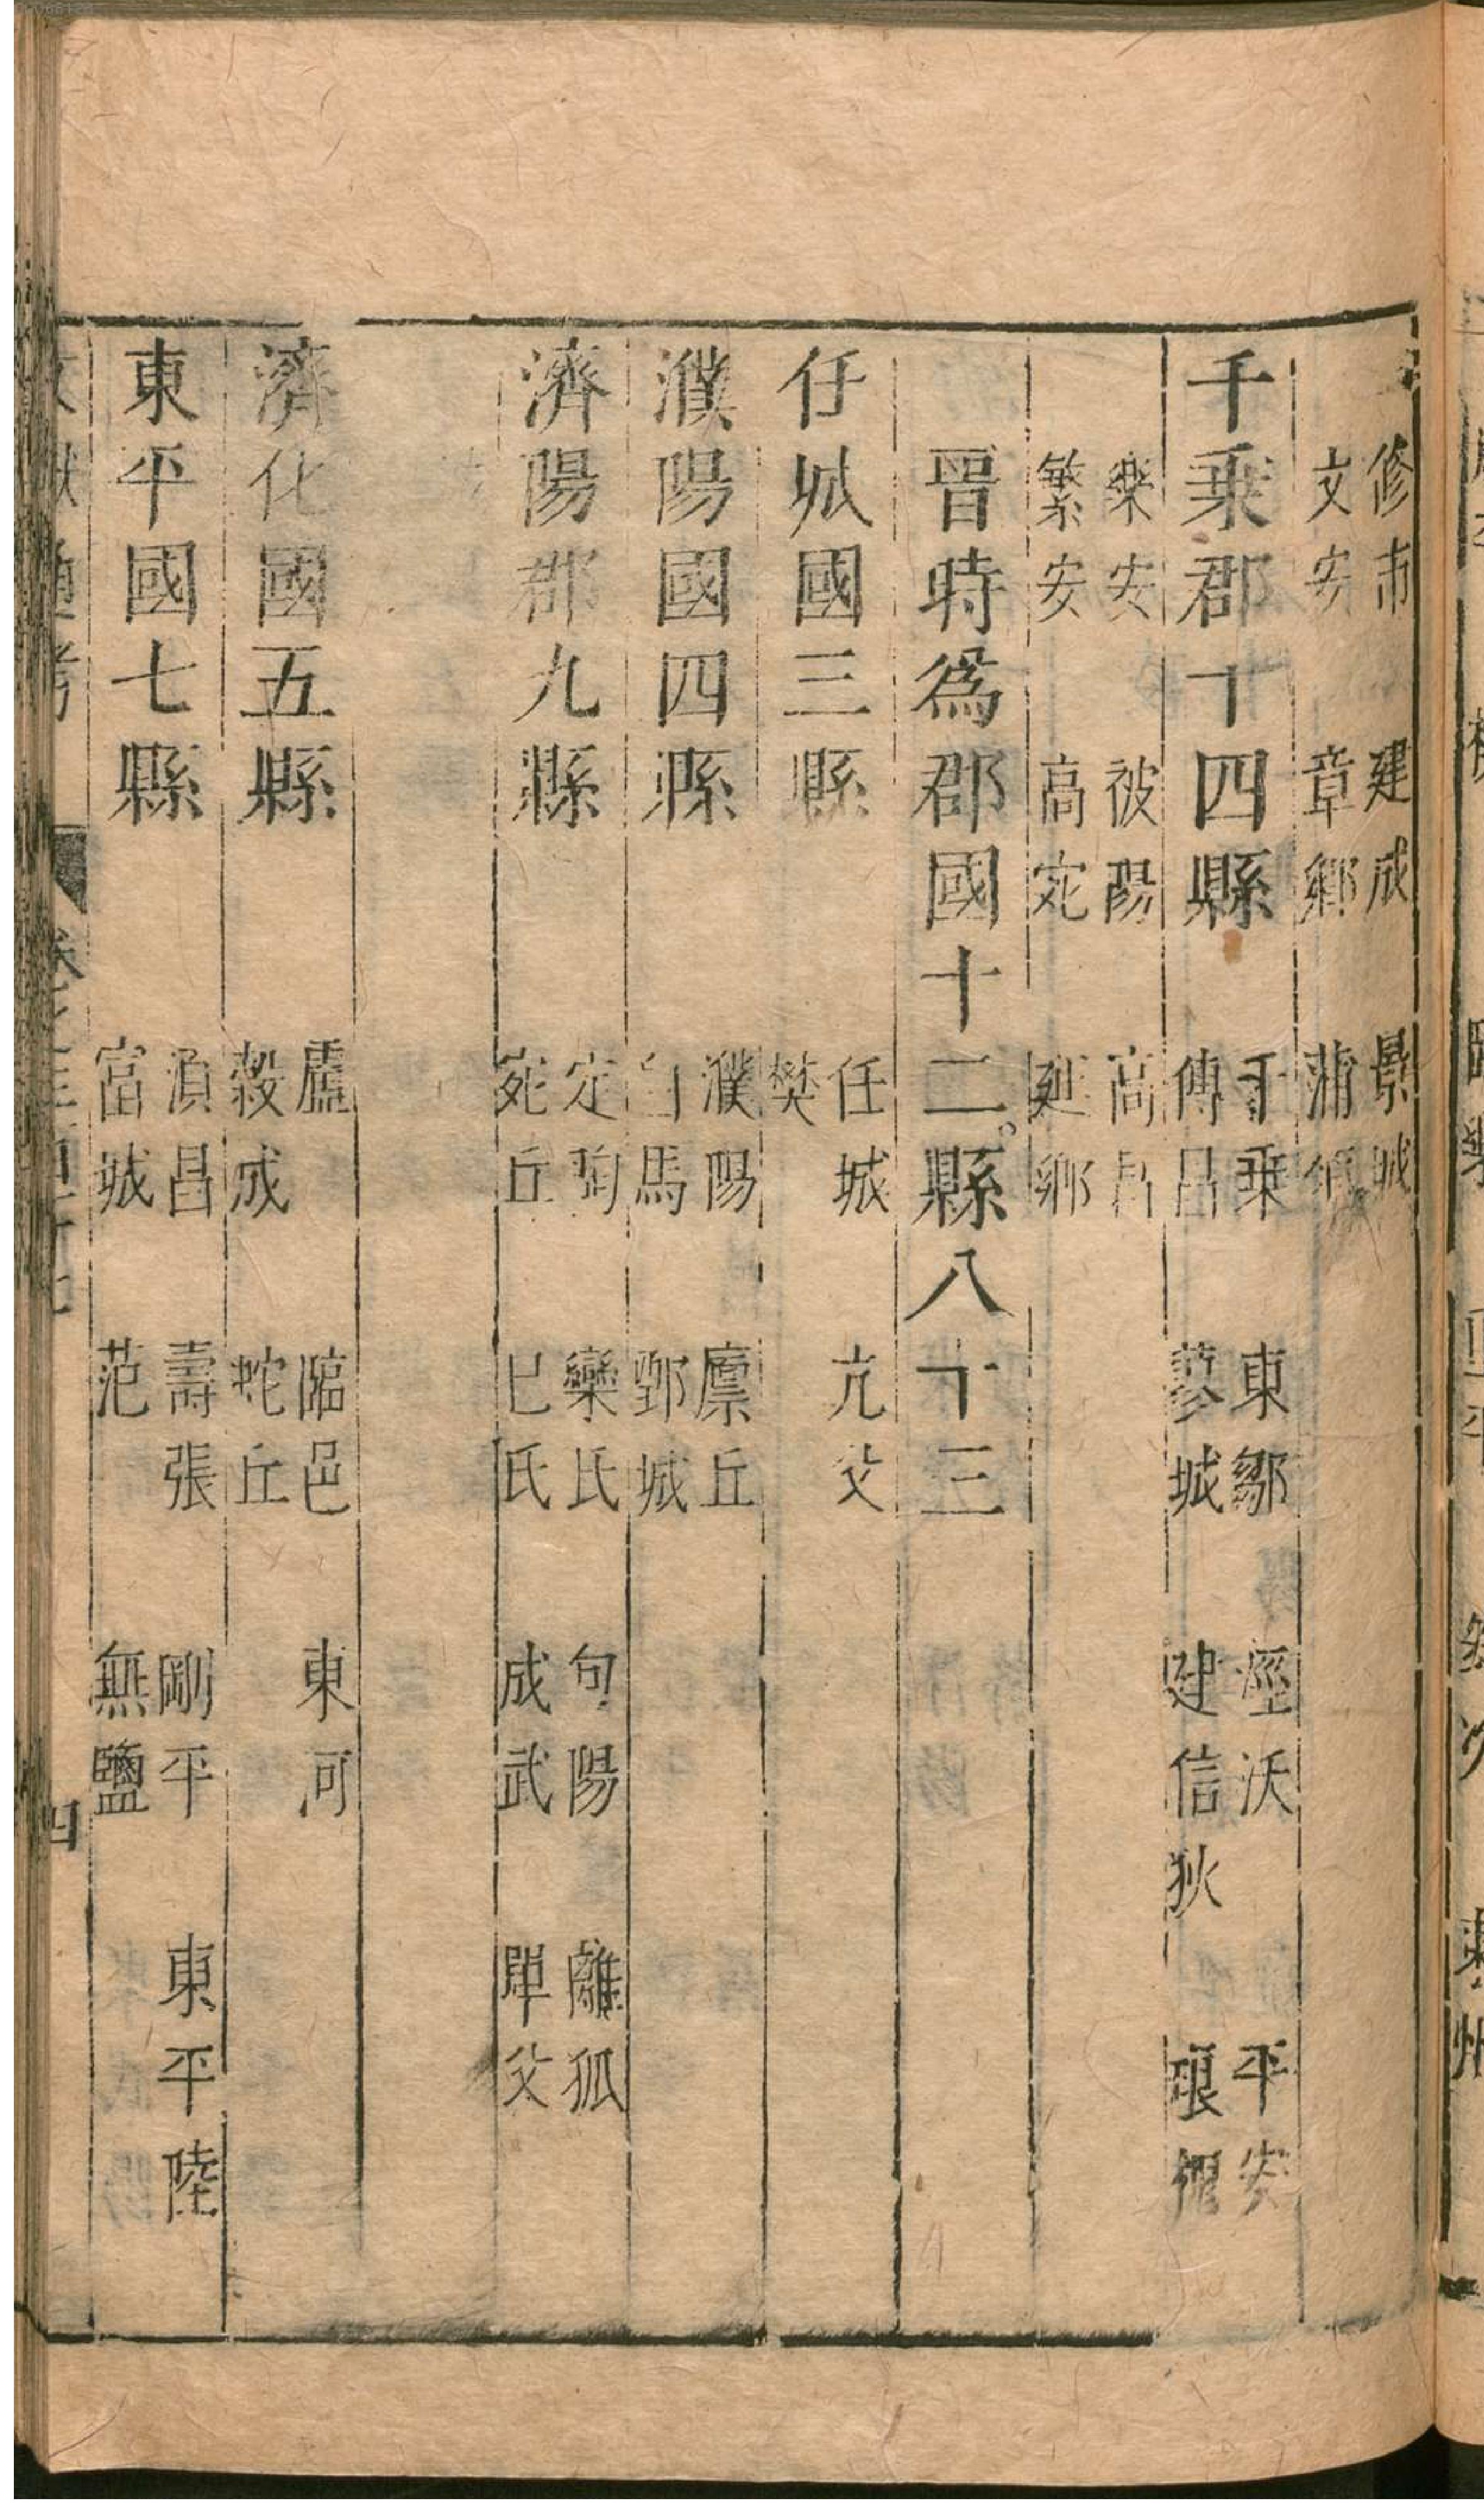 修市 建成 景城
文安 章鄉 蒲領
千乗郡十四縣 千乗 東鄒 溼沃 平安
傅昌 蓼城 建信 狄 琅槐
樂安 被陽 高昌
繁安 高宛 延鄉
晉時爲郡國十二縣八十三
任城國三縣 任城 亢父
樊
濮陽國四縣 濮陽 廪丘
白馬 鄄城
濟陽郡九縣 定陶 欒氏 句陽 離狐
宛丘 巳氏 成武 單父
濟化國五縣 盧 臨邑 東河
穀成 蛇丘
東平國七縣 湏昌 壽張 剛平 東平陸
富城 范 無鹽
四